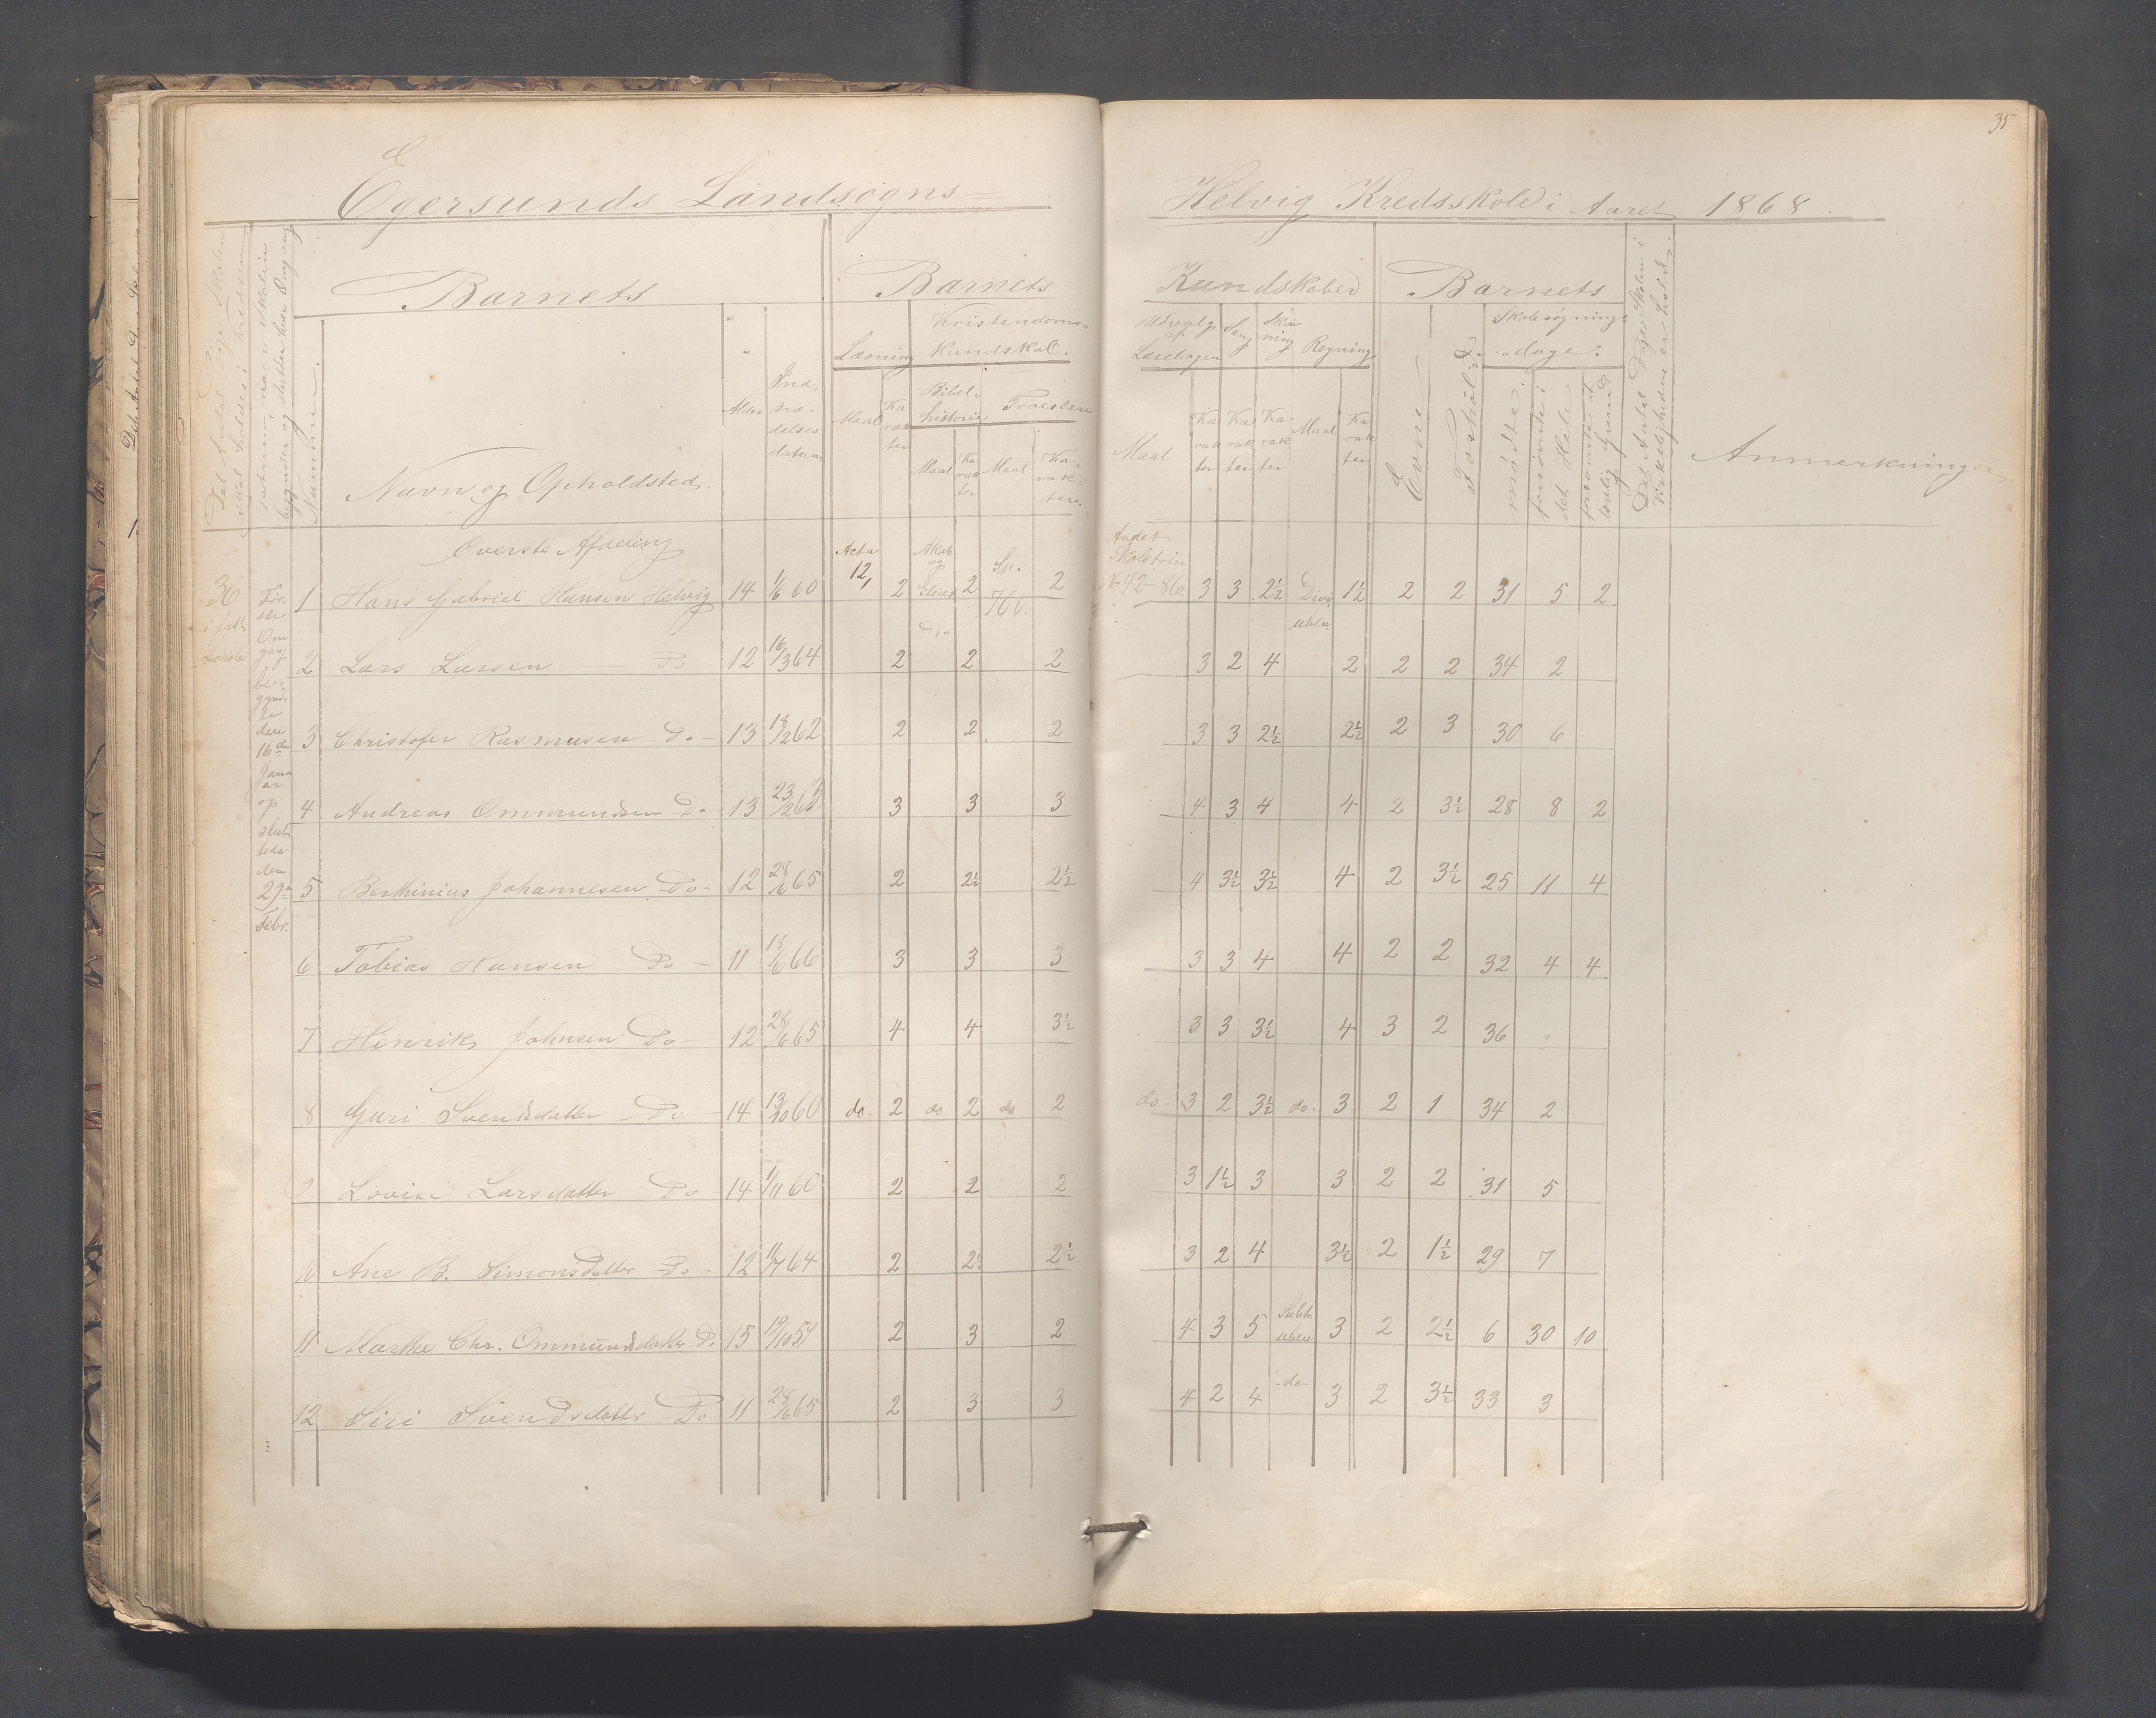 35
Egersunds Landsogns-
Helvig Kredsskole i Aaret 1868.
Det Antal Dage Skolen skal holdes i Kredsen
Datum, naar Skolen begynder og slutter hver Omgang
Nummer.
Barnets
Navn og Opholdsted.
Alder
Indtrædelses datum
Barnets
Kundskaber
Læsning
Maal
Karakter
Kristendoms-
kundskab.
Bibel-
historie
Maal
Karakter
Troeslære
Maal
Karakter
Udvalg af Læsebogen
Maal
Karakter
Sang
Karakter
Skrivning
Karakter
Regning
Maal
Karakter
Barnets
Evne
Forhold
Skolesøgnings-
dage.
mødte
forsømte i det Hele
forsømte af lovlig Grund
Det Antal Dage Skolen i Virkeligheden er holdt.
Anmerkninger
Overste Afdeling
36 i fast Skole
Første Omgang begyndte den 16de Januar og sluttede den 29de Febr.
1 Hans Gabriel Hansen Helvig 14 1/6 60 Acta 12, 2 Akab og Elias 2 Sp. 766. 2 Andet Skoletrin No 42-86. 3 3 2½ Divi. uben. 1½ 2 2 31 5 2
2 Lars Larsen Do 12 16/3 64 2 do 2 2 3 2 4 2 2 2 34 2
3 Christofer Rasmusen Do 13 18/2 62 2 2 2 3 3 2½ 2½ 2 3 30 6
4 Andreas Ommundsen Do 13 23/2 63 3 3 3 4 3 4 4 2 3½ 28 8 2
5 Berthinius Johannesen Do 12 28/6 65 2 2½ 2½ 4 3½ 3½ 4 2 3½ 25 11 4
6 Tobias Hansen Do 11 18/6 66 3 3 3 3 3 4 4 2 2 32 4 4
7 Henrik Johnsen Do 12 28/6 65 4 4 3½ 3 3 3½ 4 3 2 36 "
8 Guri Svendsdatter Do 14 13/10 60 do. 2 do 2 do 2 do 3 2 3½ do. 3 2 1 34 2
9 Lovise Larsdatter Do 14 1/11 60 2 2 2 3 1½ 3 3 2 2 31 5
10 Ane B. Simonsdatter Do 12 11/7 64 2 2½ 2½ 3 2 4 3½ 2 1½ 29 7
11 Marthe Chr. Ommundsdatter Do 15 19/10 59 2 3 2 4 3 5 Subtr. uben 3 2 2½ 6 30 10
12 Siri Svendsdatter Do 11 28/6 65 2 3 3 4 2 4 -do- 3 2 3½ 33 3